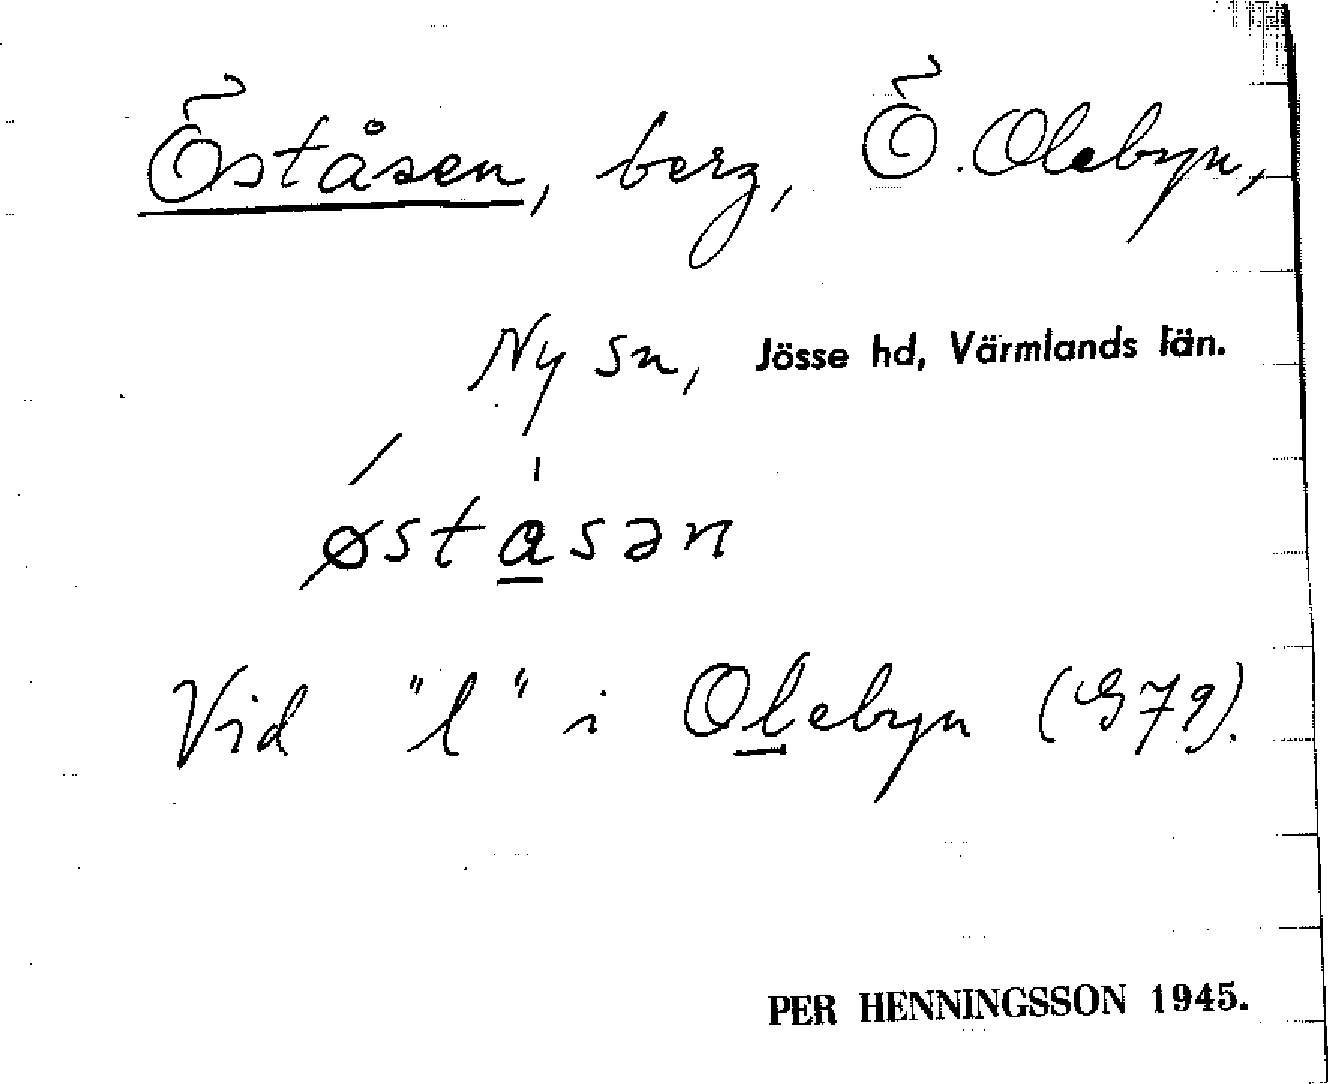 Öståsen, berg, Ö. Olebyn,
Ny sn, Jösse hd, Värmlands län.
østa̲sən
Vid "l" i Ol̲ebyn (979).
PER HENNINGSSON 1945.